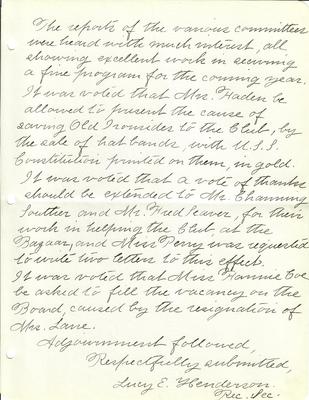 The reports of the various committees
were heard with much interest, all
showing excellent work in securing
a fine program for the coming year.
It was voted that Mrs. Haden be
allowed to present the cause of
saving Old Ironsides to the Club, by
the sale of hat bands, with U.S.S.
Constitution printed on them, in gold.
It was voted that a vote of thanks
should be extended to Mr. Channing
Souther and Mr. Fred Seaver, for their
work in helping the Club at the
Bazaar, and Miss Perry was requested
to write two letters to this effect.
It was voted that Miss Fannie Coe
be asked to fill the vacancy on the
Board, caused by the resignation of
Mrs. Lane.
Adjournment followed,
Respectfully submitted,
Lucy E. Henderson.
Rec. Sec.